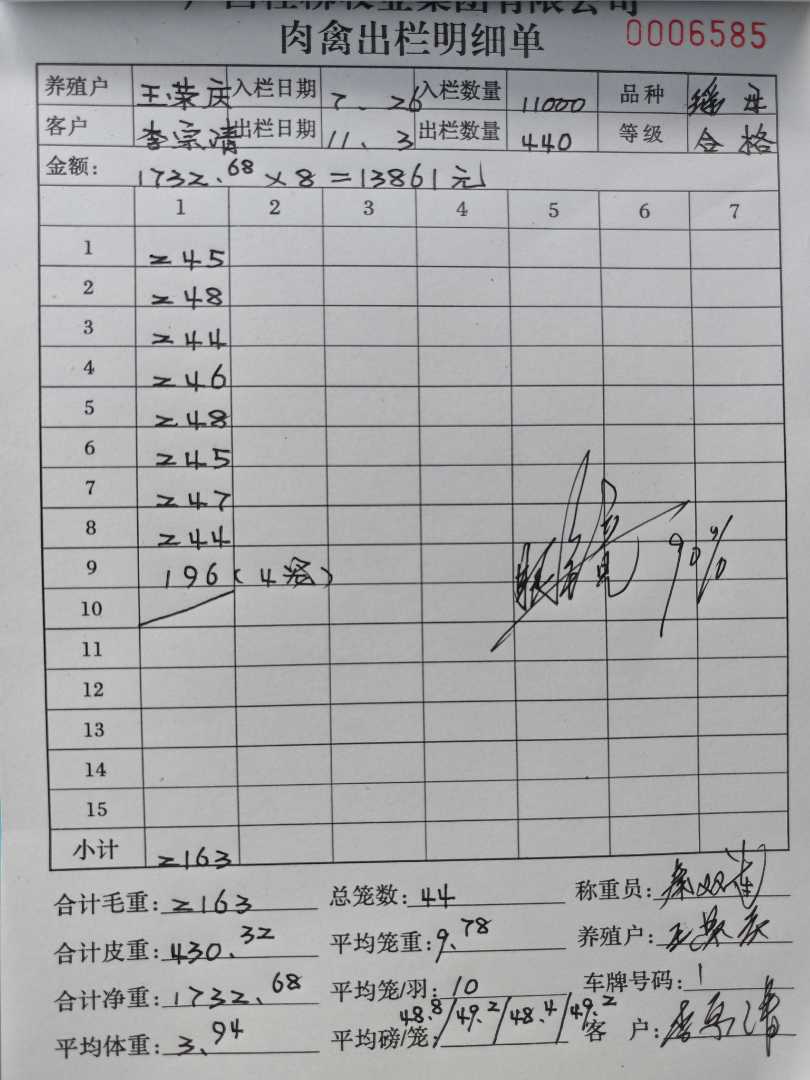 广西桂柳牧业集团有限公司
肉禽出栏明细单 0006585
养殖户 王荣庆 入栏日期 7.26 入栏数量 11000 品种
客户 李宗清 出栏日期 11.3 出栏数量 440 等级 合格
金额: 1732.68×8=13861元
1 2 3 4 5 6 7
1 245
2 248
3 244
4 246
5 248
6 245
7 247
8 244
9 196(4笼)
90%
10
11
12
13
14
15
小计 2163
合计毛重: 2163 总笼数: 44 称重员:
合计皮重: 430.32 平均笼重: 9.78 养殖户: 王荣庆
合计净重: 1732.68 平均笼/羽: 10 车牌号码:
平均体重: 3.94 平均磅/笼: 48.8/49.2/48.4/49.2 客户: 李宗清